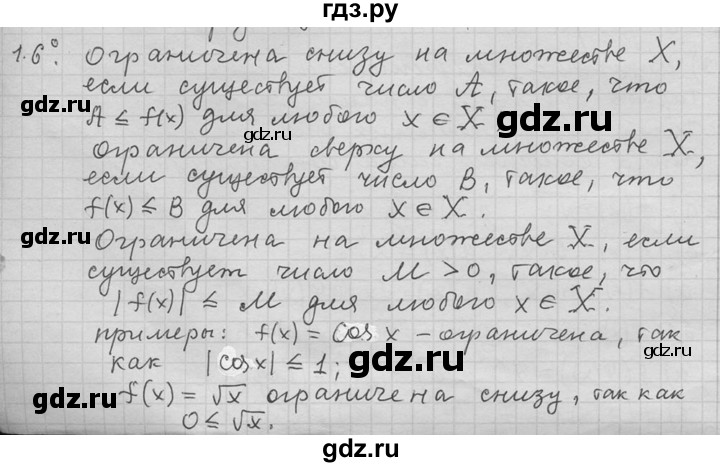 гдз.ру
1.6°. Ограничена снизу на множестве X,
если существует число A, такое, что
A ≤ f(x) для любого x ∈ X
gdz.ru gdz.ru gdz.ru
ограничена сверху на множестве X,
если существует число B, такое, что
f(x) ≤ B для любого x ∈ X.
gdz.ru
Ограничена на множестве X, если
существует число M > 0, такое, что
|f(x)| ≤ M для любого x ∈ X.
gdz.ru
примеры: f(x) = cos x – ограничена, так
как |cos x| ≤ 1;
gdz.ru gdz.ru
f(x) = √x ограничена снизу, так как
0 ≤ √x.
gdz.ru gdz.ru
gdz.ru